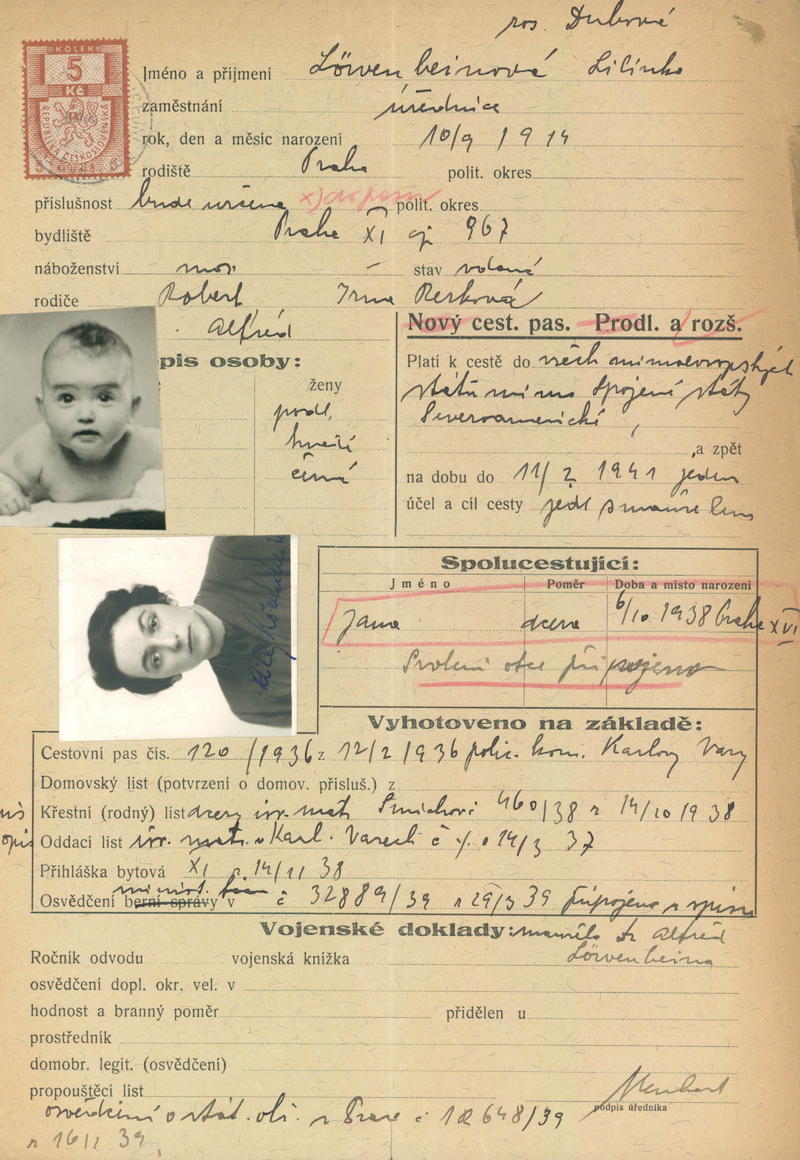 roz. Dubová
KOLEK
5
Kč
REPUBLIKA ČESKOSLOVENSKÁ
Jméno a příjmení Löwenbeinová Lilinka
zaměstnání úřednice
rok, den a měsíc narození 10/9 1914
rodiště Praha polit. okres
příslušnost bude určena x) polit. okres
bydliště Praha XI čp 967
náboženství mos. – stav vdaná
rodiče Robert Irma Perková
Alfréd
Nový cest. pas. Prodl. a rozš.
pis osoby:
ženy
podl.
hnědí
černé
Platí k cestě do všech mimoevropských
států mimo Spojené státy
Severoamerické
, a zpět
na dobu do 11/2 1941 jeden
účel a cíl cesty
Spolucestující:
Jméno Poměr Doba a místo narození
Jana dcera 6/10 1938 Praha XVI
Svolení otce připojeno
Vyhotoveno na základě:
Cestovní pas čís. 120/1936 z 12/2 1936 polic. kom. Karlovy Vary
Domovský list (potvrzení o domov. přísluš.) z
Křestní (rodný) list dcery isr. mat. Smíchově 460/38 z 14/10 1938
opis Oddací list isr. mat. v Karl. Varech č 14/3 37
Přihláška bytová XI z 14/11 38
Osvědčení berní správy v minist. č 32889/39 z 29/3 39 připojeno u spisu
Vojenské doklady: manžela Dr Alfréd
Löwenbeina
Ročník odvodu vojenská knížka
osvědčení dopl. okr. vel. v
hodnost a branný poměr přidělen u
prostředník
domobr. legit. (osvědčení)
propouštěcí list
podpis úředníka
osvědčení o stát. obč. z Praze č 12648/39
z 16/1 39